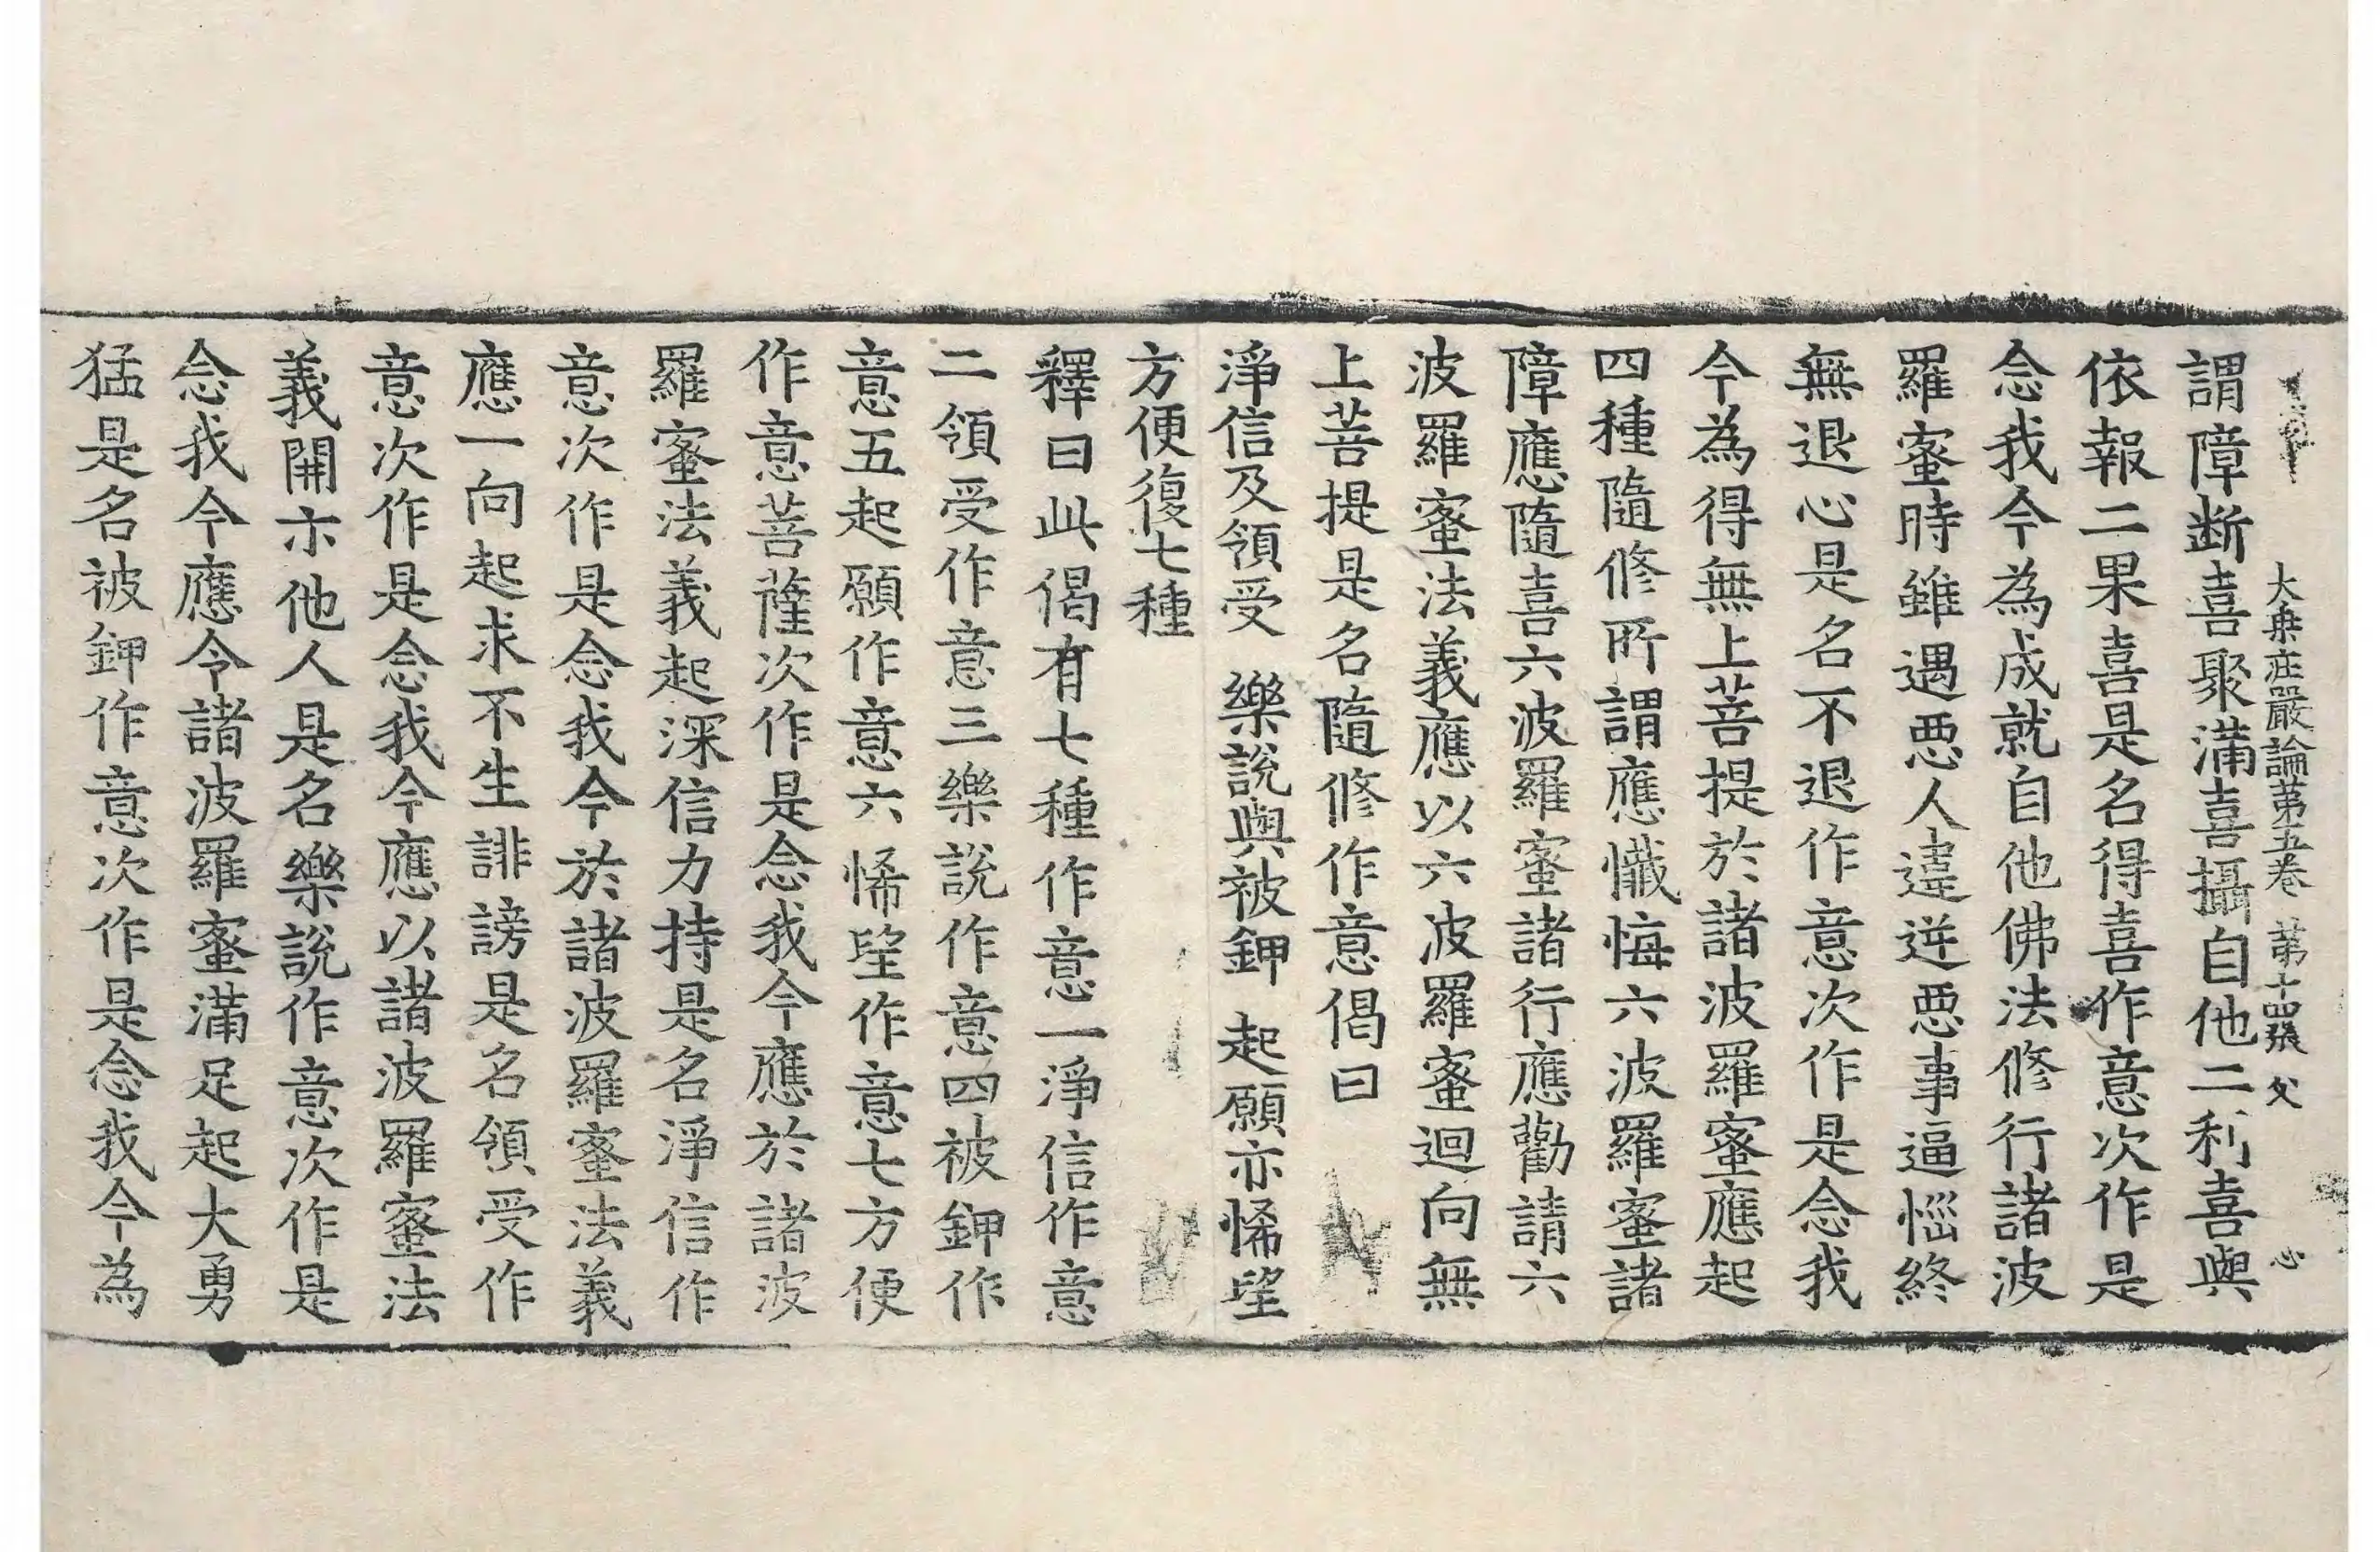 大乗莊嚴論苐五卷 苐十四張 父
謂障断喜聚滿喜攝自他二利喜與
依報二果喜是名得喜作意次作是
念我今為成就自他佛法修行諸波
羅蜜時雖遇惡人違逆惡事逼惱終
無退心是名不退作意次作是念我
今為得無上菩提於諸波羅蜜應起
四種隨修所謂應懺悔六波羅蜜諸
障應隨喜六波羅蜜諸行應勸請六
波羅蜜法義應以六波羅蜜迴向無
上菩提是名隨修作意偈曰
淨信及領受 樂説與被鉀 起願亦悕望
方便復七種
釋曰此偈有七種作意一淨信作意
二領受作意三樂說作意四被鉀作
意五起願作意六悕望作意七方便
作意菩薩次作是念我今應於諸波
羅蜜法義起深信力持是名淨信作
意次作是念我今於諸波羅蜜法義
應一向起求不生誹謗是名領受作
意次作是念我今應以諸波羅蜜法
義開示他人是名樂説作意次作是
念我今應令諸波羅蜜滿足起大勇
猛是名被鉀作意次作是念我今為